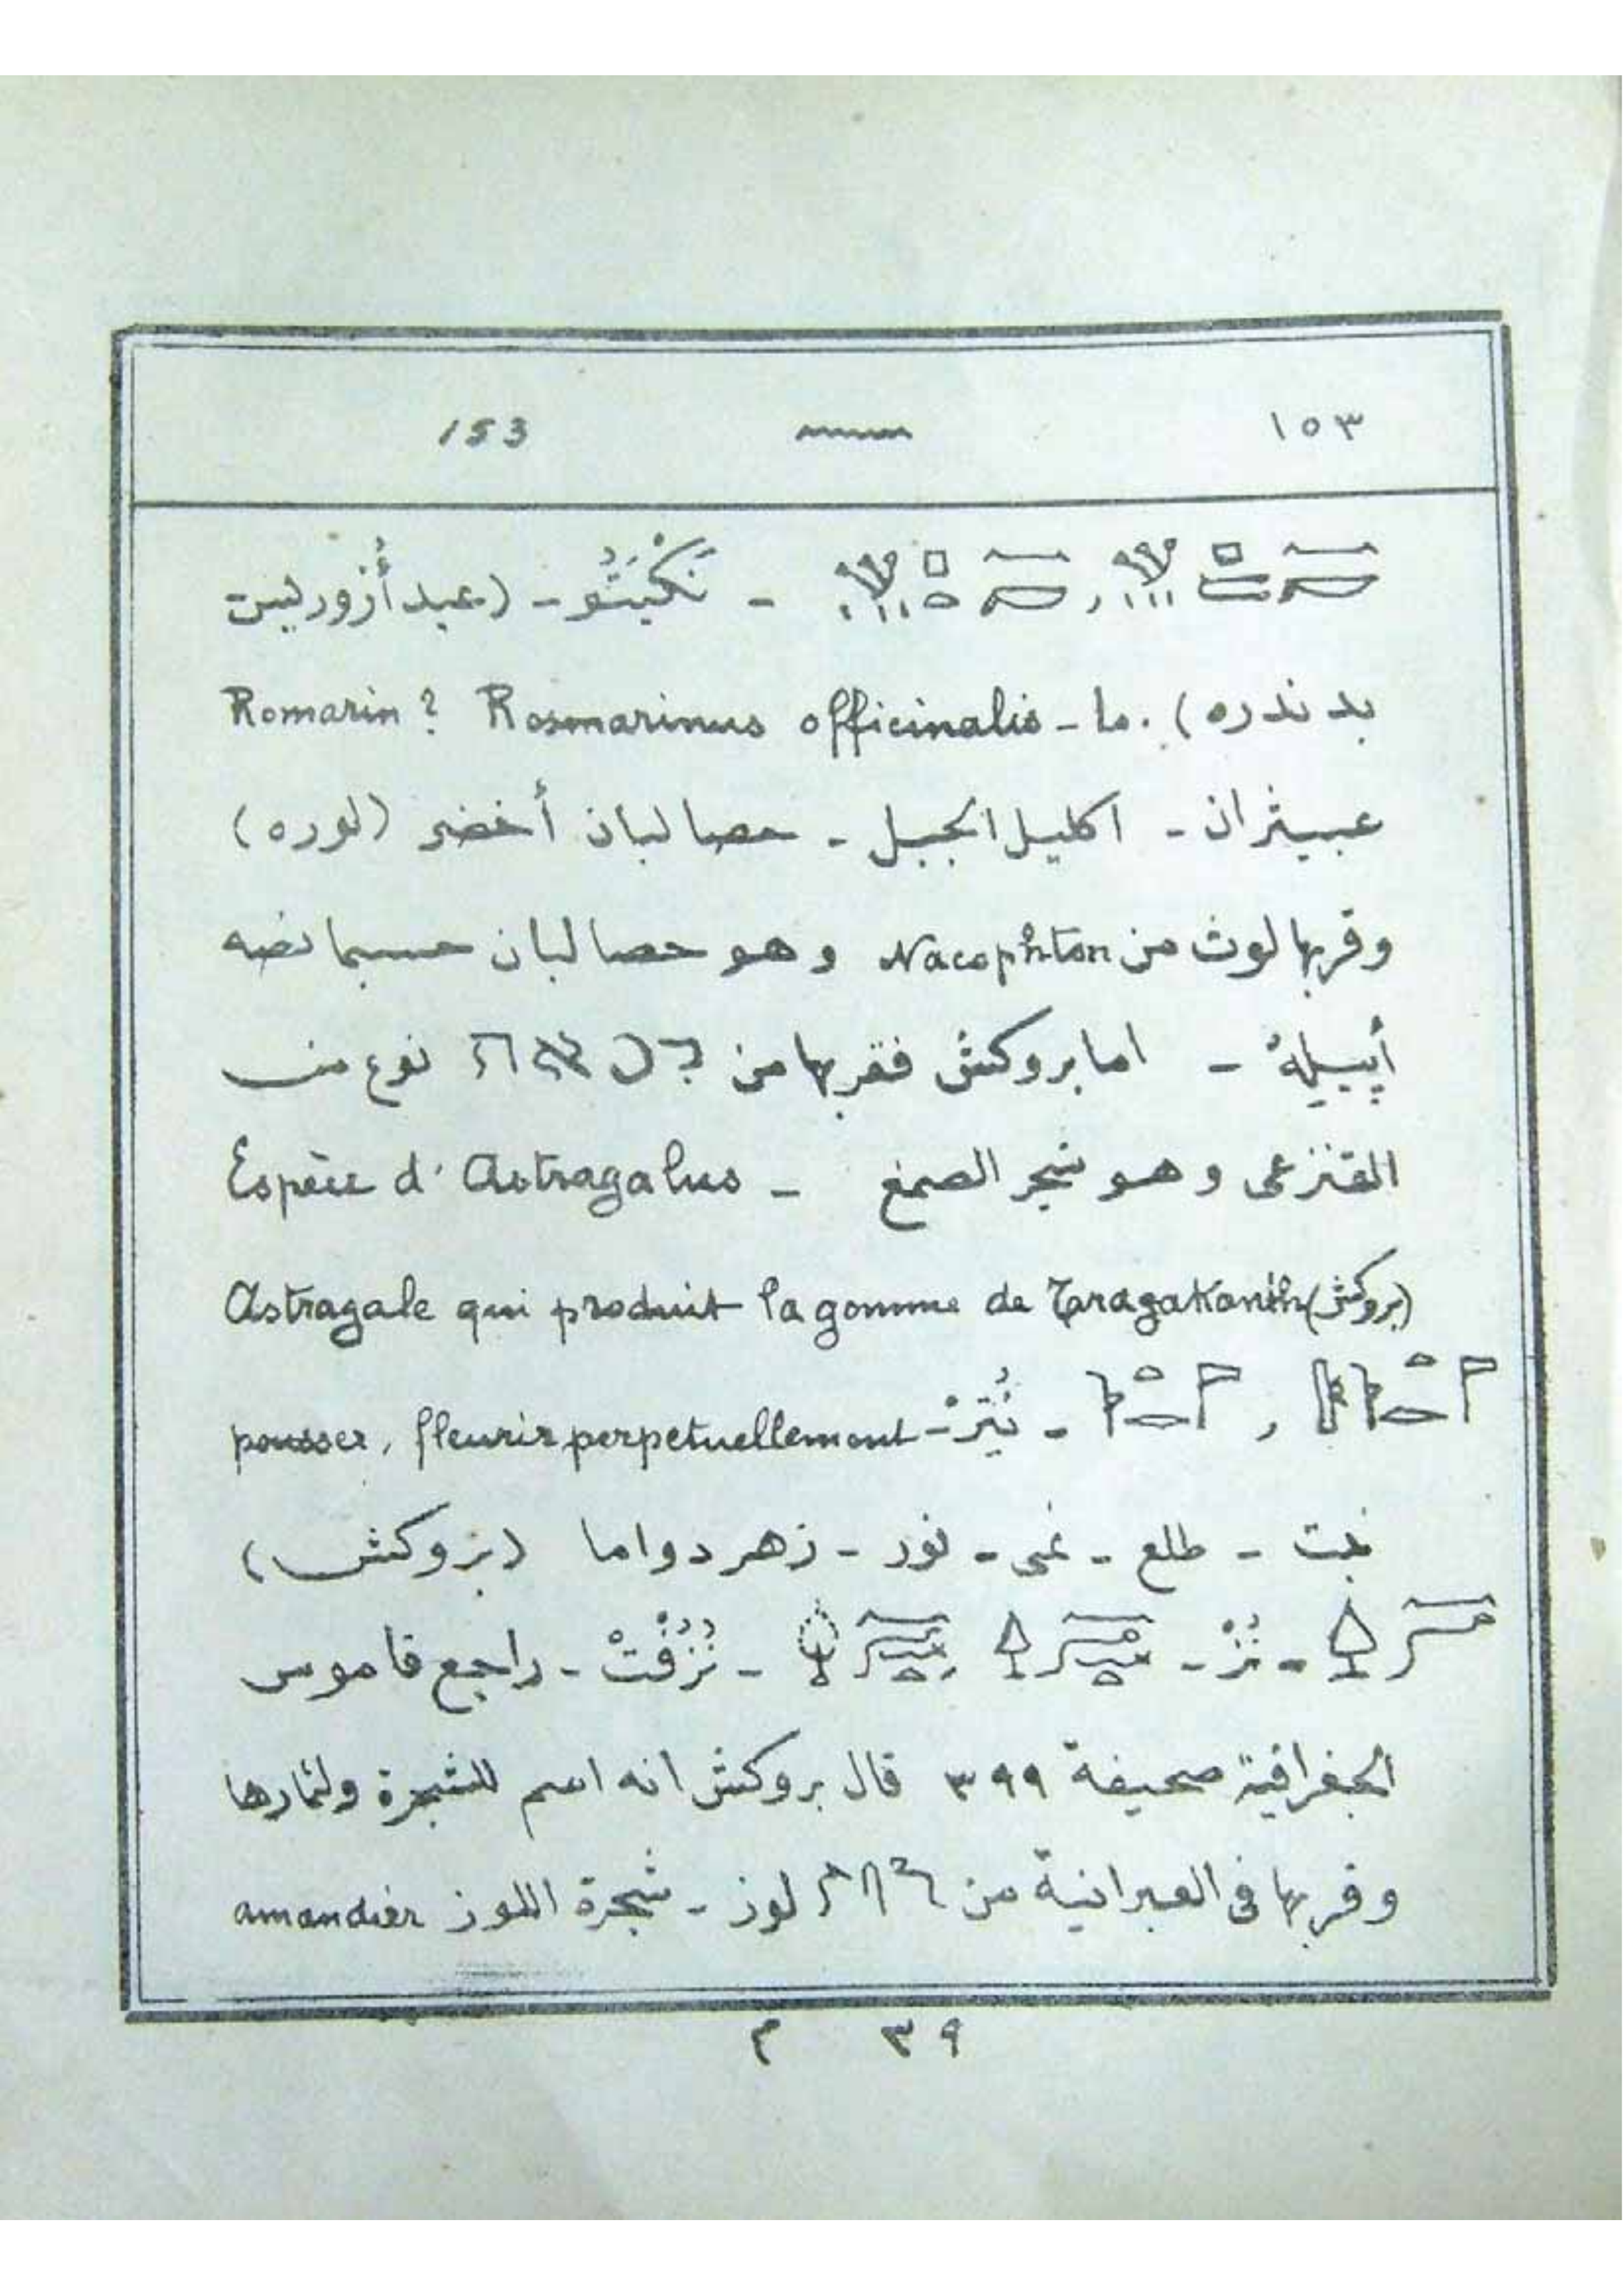 ١٥٣ 153
نَكْيَتُو - (عيد أُزوريس
بدندره). ما - Romarin ? Rosmarinus officinalis
عبيثران - اكليل الجبل - حصا لبان أخضر (لوره)
وقربها لوث من Nacophton وهو حصا لبان حسبما نصه
- اما بروكش فقربها من نوع من
القنزعى وهو شجر الصمغ - Espèce d'Astragalus
Astragale qui produit la gomme de Taragakanth (بروكش)
pousser, fleurir perpetuellement
نبت - طلع - نمى - نور - زهر دواما (بروكش)
نُزْ - نُزُفْتْ - راجع قاموس
الجغرافية صحيفة ٣٩٩ قال بروكش انه اسم للشجرة ولثمارها
وقربها فى العبرانية من لوز - شجرة اللوز amandier
٣٩ م